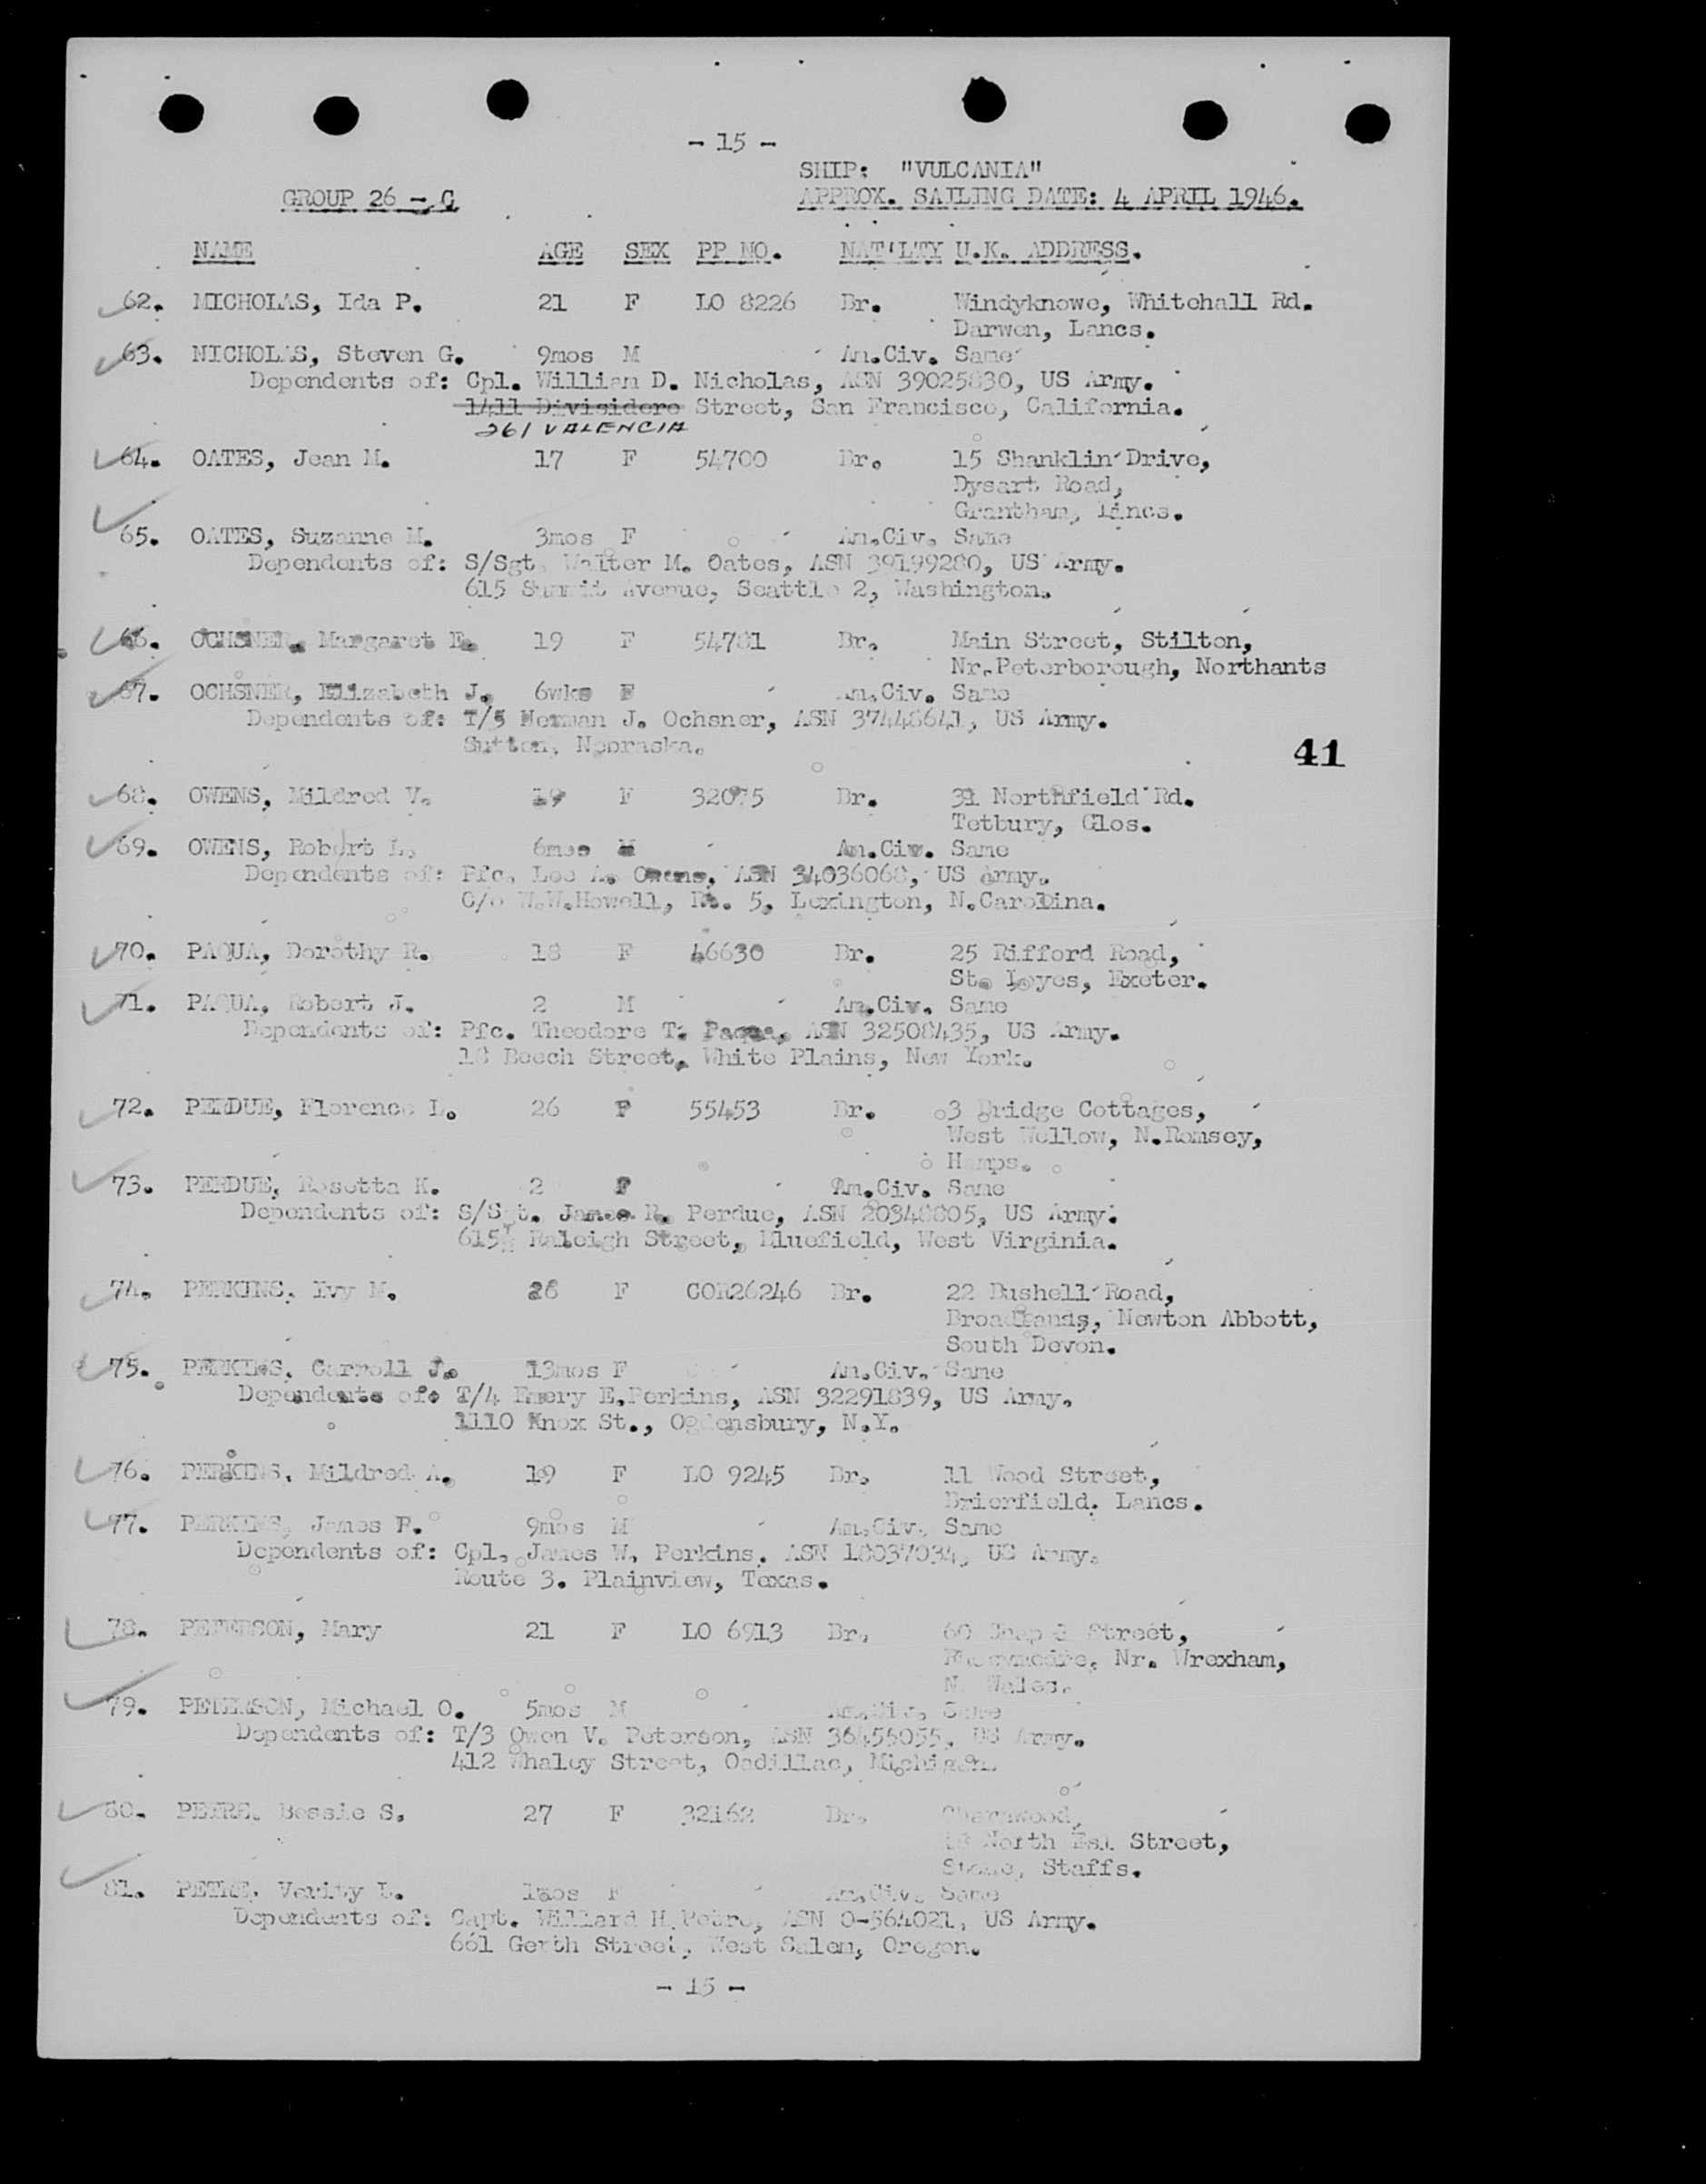 - 15 -
SHIP: "VULCANIA"
GROUP 26 - C APPROX. SAILING DATE: 4 APRIL 1946.
NAME AGE SEX PP NO. NAT'LTY U.K. ADDRESS.
62. NICHOLAS, Ida P. 21 F LO 8226 Br. Windyknowe, Whitehall Rd.
Darwen, Lancs.
63. NICHOLAS, Steven G. 9mos M Am.Civ. Same
Dependents of: Cpl. William D. Nicholas, ASN 39025830, US Army.
1411 Divisidero Street, San Francisco, California.
261 VALENCIA
64. OATES, Jean M. 17 F 54700 Br. 15 Shanklin Drive,
Dysart Road,
Grantham, Lincs.
65. OATES, Suzanne M. 3mos F Am.Civ. Same
Dependents of: S/Sgt. Walter M. Oates, ASN 39199280, US Army.
615 Summit Avenue, Seattle 2, Washington.
66. OCHSNER, Margaret E. 19 F 54781 Br. Main Street, Stilton,
Nr.Peterborough, Northants
67. OCHSNER, Elizabeth J. 6wks F Am.Civ. Same
Dependents of: T/5 Herman J. Ochsner, ASN 37448641, US Army.
Sutton, Nebraska.
41
68. OWENS, Mildred V. 19 F 32075 Br. 31 Northfield Rd.
Tetbury, Glos.
69. OWENS, Robert L. 6mos M Am.Civ. Same
Dependents of: Pfc. Lee A. Owens, ASN 34036068, US Army.
C/o W.W.Howell, Rt. 5, Lexington, N.Carolina.
70. PAQUA, Dorothy R. 18 F 46630 Br. 25 Rifford Road,
St. Loyes, Exeter.
71. PAQUA, Robert J. 2 M Am.Civ. Same
Dependents of: Pfc. Theodore T. Paqua, ASN 32508435, US Army.
18 Beech Street, White Plains, New York.
72. PERDUE, Florence L. 26 F 55453 Br. 3 Bridge Cottages,
West Wellow, N.Romsey,
Hamps.
73. PERDUE, Rosetta K. 2 F Am.Civ. Same
Dependents of: S/Sgt. James R. Perdue, ASN 20348805, US Army.
615 Raleigh Street, Bluefield, West Virginia.
74. PERKINS, Ivy M. 28 F COR26246 Br. 22 Bushell Road,
Broadlands, Newton Abbott,
South Devon.
75. PERKINS, Carroll J. 13mos F Am.Civ. Same
Dependents of: T/4 Emery E.Perkins, ASN 32291839, US Army.
1110 Knox St., Ogdensbury, N.Y.
76. PERKINS, Mildred A. 19 F LO 9245 Br. 11 Wood Street,
Brierfield. Lancs.
77. PERKINS, James P. 9mos M Am.Civ. Same
Dependents of: Cpl. James W. Perkins. ASN 18037034, US Army.
Route 3. Plainview, Texas.
78. PETERSON, Mary 21 F LO 6913 Br. 60 Street,
Nr. Wrexham,
N. Wales.
79. PETERSON, Michael O. 5mos M Am.Civ. Same
Dependents of: T/3 Owen V. Peterson, ASN 36456055, US Army.
412 Whaley Street, Cadillac, Michigan.
80. PETRE, Bessie S. 27 F 32162 Br. Charnwood,
North Street,
Stone, Staffs.
81. PETRE, Verity L. F Am.Civ. Same
Dependents of: Capt. Willard H.Petre, ASN O-564021, US Army.
661 Gerth Street, West Salem, Oregon.
- 15 -